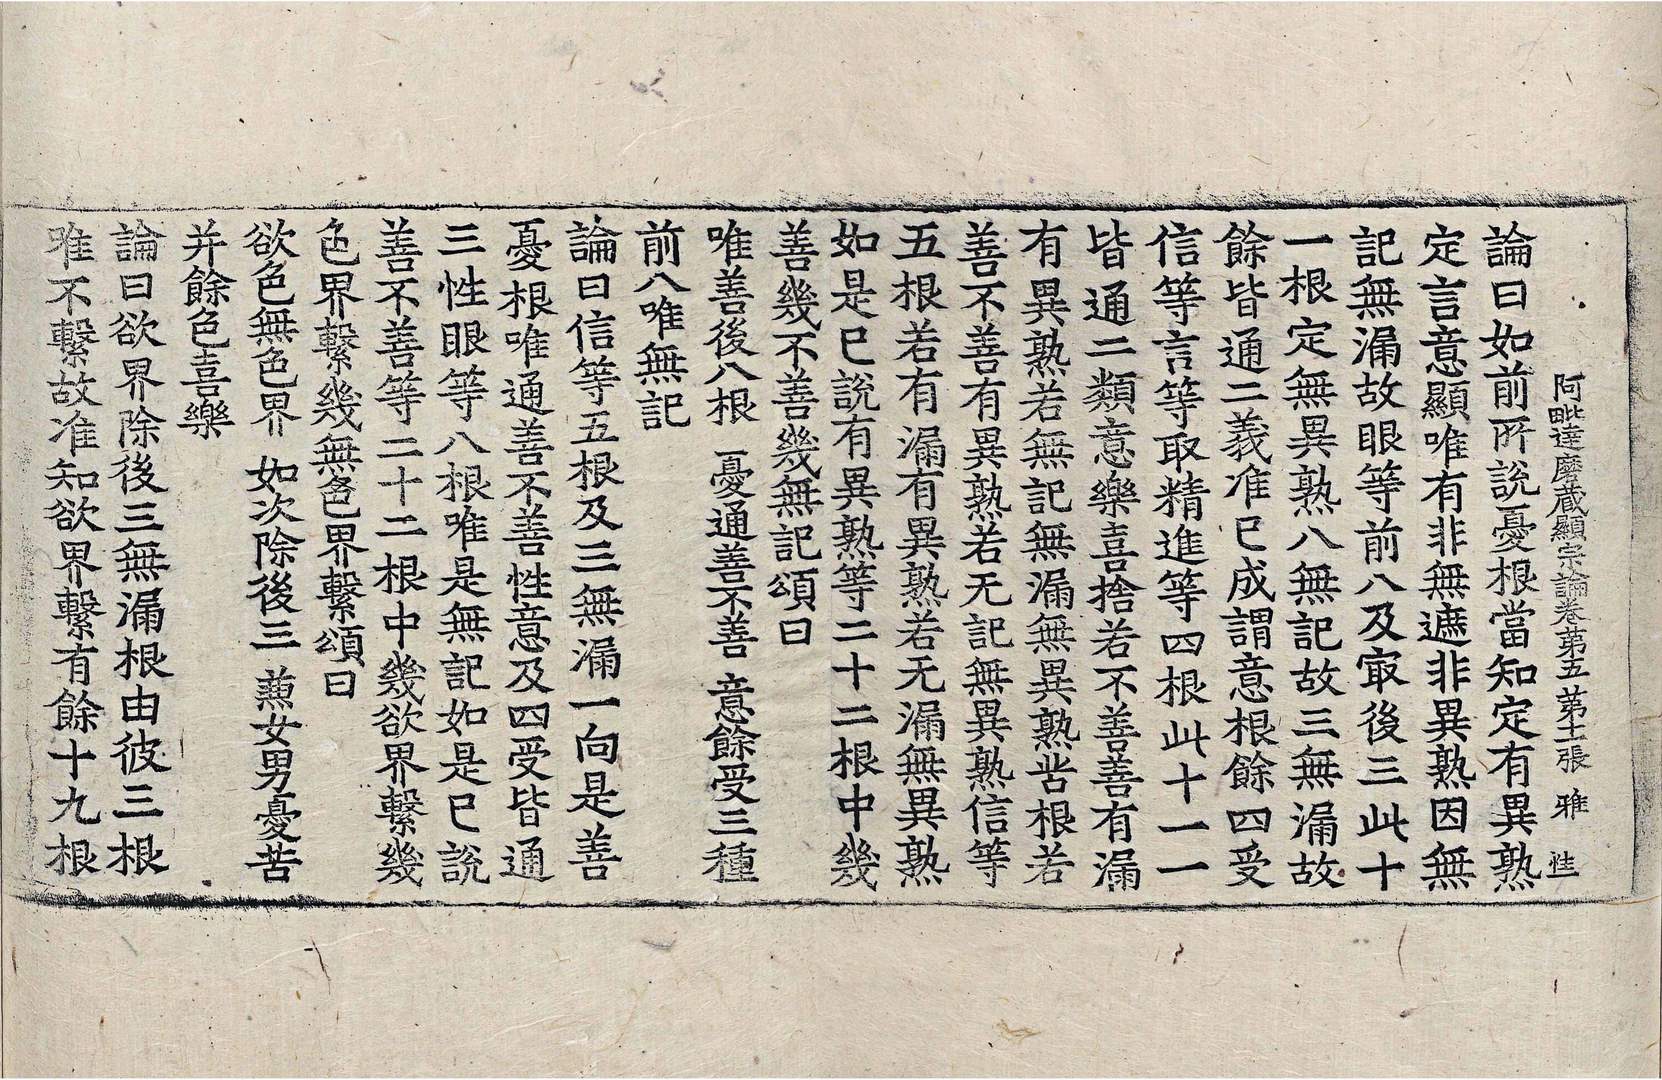 阿毗達磨藏顯宗論卷第五 第十一張 雅 性
論曰如前所說憂根當知定有異熟
定言意顯唯有非無遮非異熟因無
記無漏故眼等前八及㝡後三此十
一根定無異熟八無記故三無漏故
餘皆通二義准已成謂意根餘四受
信等言等取精進等四根此十一一
皆通二類意樂喜捨若不善善有漏
有異熟若無記無漏無異熟苦根若
善不善有異熟若无記無異熟信等
五根若有漏有異熟若无漏無異熟
如是已說有異熟等二十二根中幾
善幾不善幾無記頌曰
唯善後八根 憂通善不善 意餘受三種
前八唯無記
論曰信等五根及三無漏一向是善
憂根唯通善不善性意及四受皆通
三性眼等八根唯是無記如是已說
善不善等二十二根中幾欲界繫幾
色界繫幾無色界繫頌曰
欲色無色界 如次除後三 蕉女男憂苦
并餘色喜樂
論曰欲界除後三無漏根由彼三根
唯不繫故准知欲界繫有餘十九根